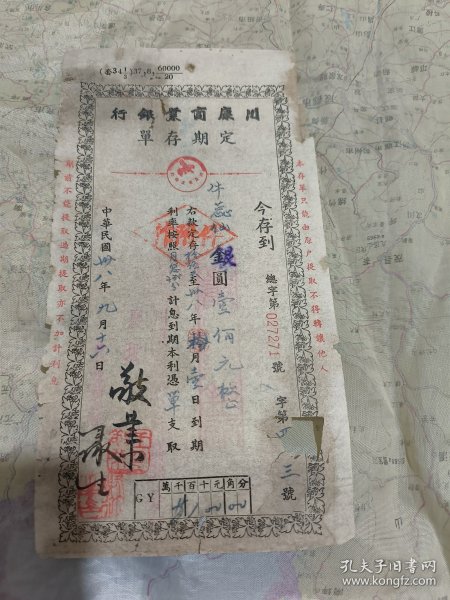 (套34 1/3)37,8, 60000/2—20
川康商業銀行
定期存單
今存到
總字第027271號
字第
三號
牛蕊仙
銀圓壹佰元
至卅八年拾月壹日到期
利率按照月息 計息到期本利憑單支取
中華民國卅八年九月十六日
本存單只能由原戶提取不得轉讓他人
期前不能提取過期提取亦不加計利息
敬業
GY
萬千百十元角分
孔夫子旧书网
www.kongfz.com